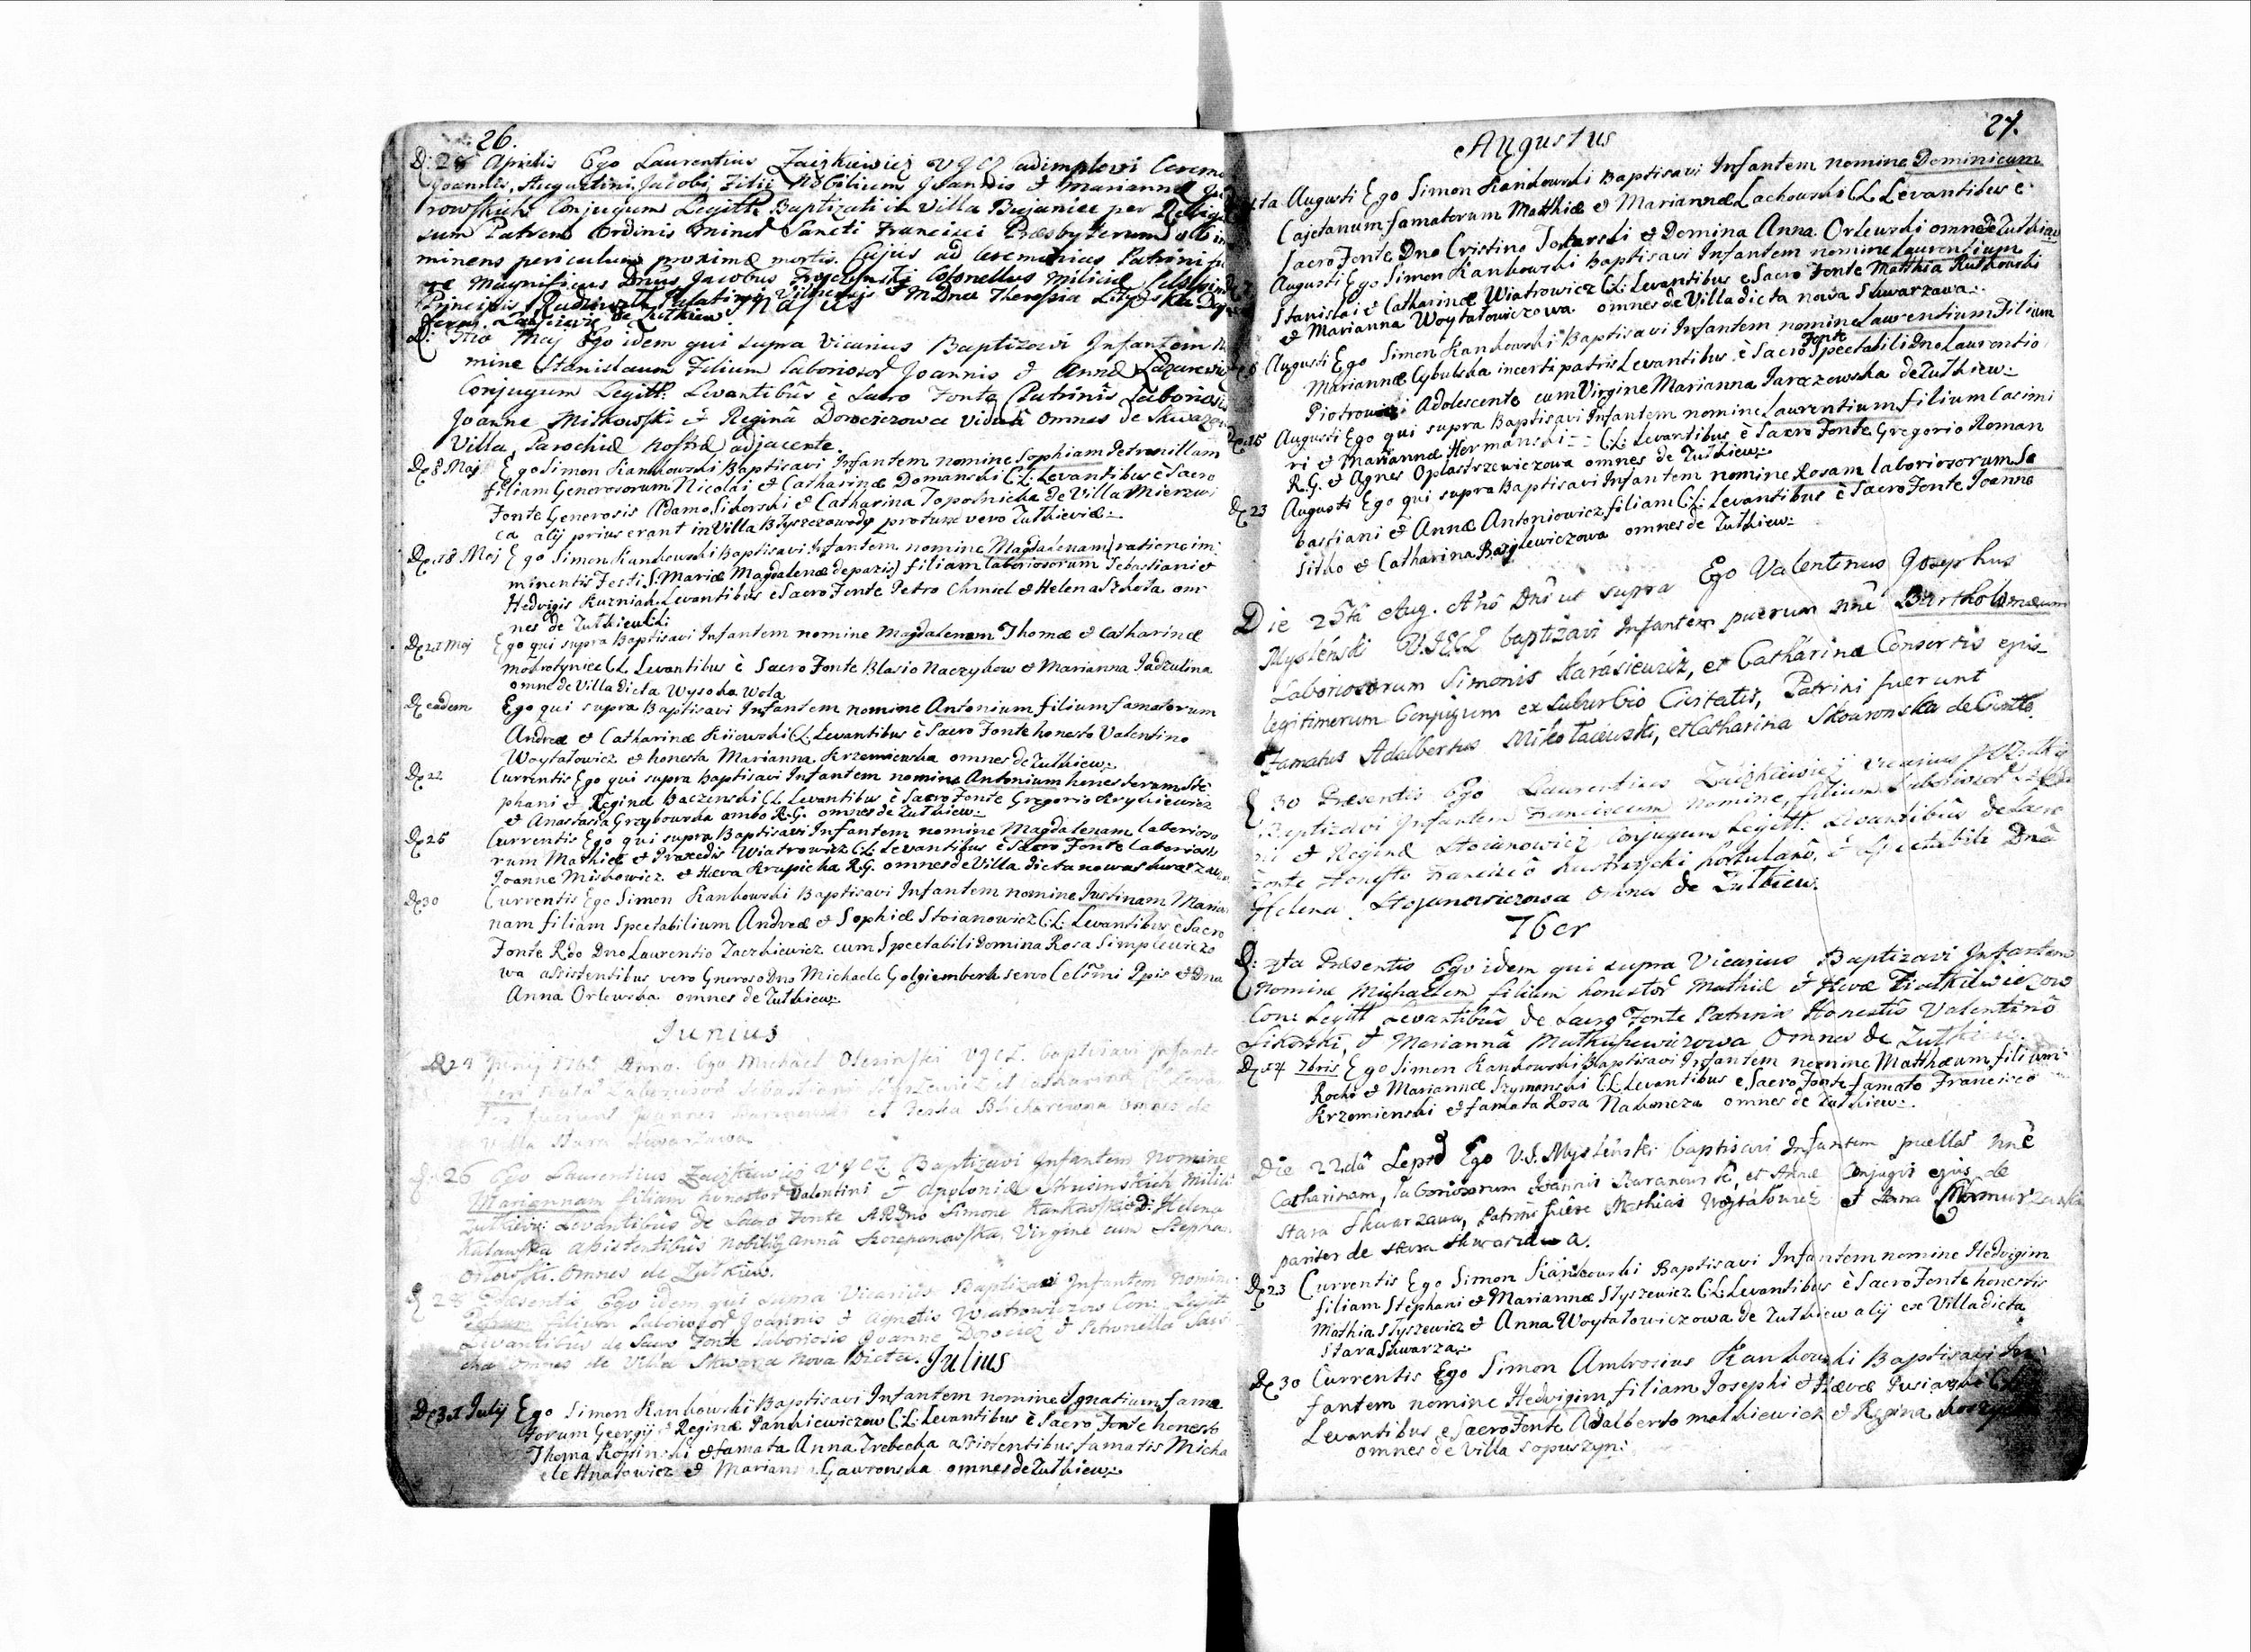 26.
D: 28 Aprilis Ego Laurentius Zaczkiewicz VJCZ adimplevi Cerem
Joannis, Augustini, Jacobi, Filii Nobilium Joannis et Mariannæ
rowskich Conjugum Legitt: Baptizati in Villa Bujanice per Religio
sum Patrem Ordinis Minor Sancti Francisci Præsbyterum ob im
minens periculum proximæ mortis. Cujus ad ceremonias Patrini fu
re Magnificus Dnus Jacobus Colonellus Militiæ Celsissimi
Principis Radziwill Palatini Vilnensis et MDna Theresia
de Zulkiew. Majus
D: Maj Ego idem qui supra Vicarius Baptizavi Infantem no
mine Stanislaum Filium Laboriosor Joannis et Annæ Lazarewicz
Conjugum Legitt: Levantibus è Sacro Fonte Patrinis Laboriosis
Joanne Mitkowski et Reginâ Dorociczowa viduâ omnes de Skwarzawa
Villa, Parochiæ nostræ adjacente.
De 8 Maj Ego Simon Kankowski Baptisavi Infantem nomine Sophiam Petronillam
filiam Generosorum Nicolai et Catharinæ Domanski C:L: Levantibus è Sacro
Fonte Generosis Adamo Sikorski et Catharina Topolnicka de Villa Mierzwi
ca alij prius erant in Villa Blyszczowody protunc vero Zulkieviæ:
De 18 Maj Ego Simon Kankowski Baptisavi Infantem nomine Magdalenam (ratione im
minentis Festi S: Mariæ Magdalenæ de pazis) filiam laboriosorum Sebastiani et
Hedvigis Kuzniak Levantibus e Sacro Fonte Petro Chmiel et Helena Szkola om
nes de Zulkiew C.L:
De 21 Maj Ego qui supra Baptisavi Infantem nomine Magdalenam Thomæ et Catharinæ
Mokrotynice C.L. Levantibus è Sacro Fonte Blasio Naczykow et Marianna Jadzulina
omne de Villa dicta Wysoka Wola
De eadem Ego qui supra Baptisavi Infantem nomine Antonium filium famatorum
Andreæ et Catharinæ Kiiowski C.L. Levantibus è Sacro Fonte honesto Valentino
Woytalowicz et honesta Marianna Krzemienska omnes de Zulkiew:
De 22 Currentis Ego qui supra Baptisavi Infantem nomine Antonium honestorum Ste
phani et Reginæ Baczenski C.L. Levantibus è Sacro Fonte Gregorio Krykiewicz
et Anastasia Grzybowska ambo R.G. omnes de Zulkiew:
De 26 Currentis Ego qui supra Baptisavi Infantem nomine Magdalenam laborioso
rum Mathiæ et Praxedis Wiatrowicz C.L. Levantibus è Sacro Fonte laborioso
Joanne Miskowicz et Hæva Krupicka R.G. omnes de Villa dicta nowa skwarzawa
De 30 Currentis Ego Simon Kankowski Baptisavi Infantem nomine Justinam Marian
nam filiam Spectabilium Andreæ et Sophiæ Stoianowicz C.L. Levantibus è Sacro
Fonte Rdo Dno Laurentio Zaczkiewicz cum Spectabili Domina Rosa Simplewiczo
wa assistentibus vero Gneroso Dno Michaele Golgiemberk servo Celsmi Ppis et Dna
Anna Orlewska omnes de Zulkiew:
Junius
D 24 Junij 1765 Anno. Ego Michael Osesinski VJCZ. baptisavi Infante
Laboriosor Sebastiani et Catharinæ
Joannes et omnes de
Villa Stara Skwarzawa
D: 26 Ego Laurentius Zaczkiewicz VJCZ. Baptizavi Infantem nomine
Mariannam filiam honestor Valentini et Apoloniæ Strusinskich
Zulkiew: Levantibus de Sacro Fonte ARDno Simone Kankowski et D: Helena
Kulawska assistentibus Nobili Annâ Szczepanowska, Virgine cum Stepha
Orlowski. Omnes de Zulkiew.
D 28 Præsentis Ego idem qui supra Vicarius Baptizavi Infantem nomine
filium Laboriosor Joannis et Agnetis Wiatrowiczow Con: Legitt
Levantibus de Sacro Fonte laboriosis Joanne Dorocicz et Petronella
omnes de Villa Skwarza nova dicta. Julius
De 31 Julij Ego Simon Kankowski Baptisavi Infantem nomine Ignatium fama
torum Georgij et Reginæ Pankiewiczow C:L: Levantibus è Sacro Fonte honesto
Thoma Rosinski et famata Anna Trebecka assistentibus famatis Micha
ele Hnatowicz et Marianna Gawronska omnes de Zulkiew:
Augustus 27.
ta Augusti Ego Simon Kankowski Baptisavi Infantem nomine Dominicum
Cajetanum famatorum Matthiæ et Mariannæ Lachowski C.L. Levantibus è
Sacro Fonte Dno Cristino Tokarski et Domina Anna Orlewski omnes de Zulkiew
Augusti Ego Simon Kankowski Baptisavi Infantem nomine Laurentium
Stanislai et Catharinæ Wiatrowicz C.L. Levantibus e Sacro Fonte Matthia Rutkowski
et Marianna Woytalowiczowa omnes de Villa dicta nova Skwarzawa:
Augusti Ego Simon Kankowski Baptisavi Infantem nomine Laurentium Filium
Mariannæ Cybulska incerti patris Levantibus è Sacro Fonte Spectabili Dno Laurentio
Piotrowski Adolescente cum Virgine Marianna Jarczewska de Zulkiew:
De 15 Augusti Ego qui supra Baptisavi Infantem nomine Laurentium filium Casimi
ri et Mariannæ Hermanski C:L: Levantibus è Sacro Fonte Gregorio Roman
R.G. et Agnes Oplastrzewiczowa omnes de Zulkiew:
De 23 Augusti Ego qui supra Baptisavi Infantem nomine Rosam laboriosorum Se
bastiani et Annæ Antoniowicz filiam C.L. Levantibus è Sacro Fonte Joanne
Sitko et Catharina Bazylewiczowa omnes de Zulkiew:
Die 25ta Aug. Anô Dni ut supra Ego Valentinus Josephus
Mysleński V.J.E.C.Z baptizavi Infantem puerum nnê Bartholomæum
Laboriosorum Simonis Karásiewicz, et Catharinæ Consortis ejus
legitimerum Conjugum ex Suburbio Civitatis, Patrini fuerunt
Famatus Adalbertus Mikołaiewski, et Catharina Skowronska de Civitte.
D 30 Præsentis Ego Laurentius Zaczkiewicz Vicarius
Baptizavi Infantem Franciscum nomine, filium Laboriosor
et Reginæ Stoianowicz Conjugum Legitt. Levantibus de Sacro
Fonte Honesto Franciscô hortulanô, et Spectabile Dnâ
Helena Stojanowiczowa omnes de Zulkiew.
76er
D: 7ta Præsentis Ego idem qui supra Vicarius Baptizavi Infantem
nomine Michaelem filium honestor Mathiæ et Hevæ Fiatkiewiczow
Con: Legitt. Levantibus de Sacro Fonte Patrinis Honestis Valentinô
Sikorski, et Mariannâ Mathusewiczowa omnes de Zulkiew.
De 14 7bris Ego Simon Kankowski Baptisavi Infantem nomine Matthæum filium
Rochi et Mariannæ Szymonski C.L. Levantibus e Sacro Fonte famato Francisco
Krzemienski et famata Rosa Nakoncza omnes de Zulkiew:
Die 22dâ Septб Ego V.J. Mysleński baptisavi Infantem puellam nnê
Catharinam, laboriosorum Joannis et Annæ Conjugis ejus de
Stara Skwarzawa, Patrini fuêre Mathias Woytałowicz et Anna
pariter de Stara Skwarzawa.
De 23 Currentis Ego Simon Kankowski Baptisavi Infantem nomine Hedvigim
filiam Stephani et Mariannæ Styszewicz C.L. Levantibus è Sacro Fonte honestis
Mathia Styszewicz et Anna Woytalowiczowa de Zulkiew alij ex Villa dicta
Stara Skwarza:
De 30 Currentis Ego Simon Ambrosius Kankowski Baptisavi In
fantem nomine Hedvigim filiam Josephi et Hævæ
Levantibus e Sacro Fonte Adalberto Malkiewicz et Regina
omnes de Villa Sopuszyn: